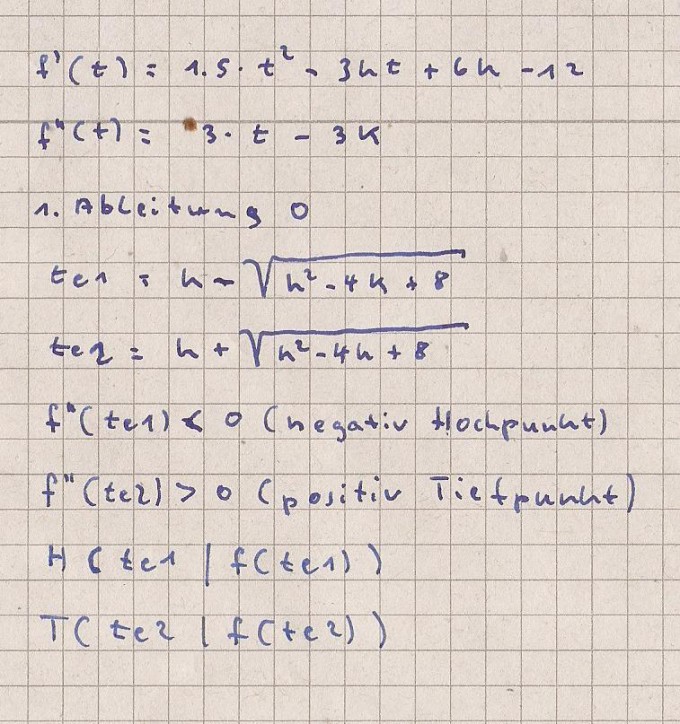 f'(t) = 1.5 · t² - 3kt + 6k - 12
f"(t) = 3 · t - 3k
1. Ableitung 0
te1 = k - √(k² - 4k + 8)
te2 = k + √(k² - 4k + 8)
f"(te1) < 0 (negativ Hochpunkt)
f"(te2) > 0 (positiv Tiefpunkt)
H(te1 | f(te1))
T(te2 | f(te2))